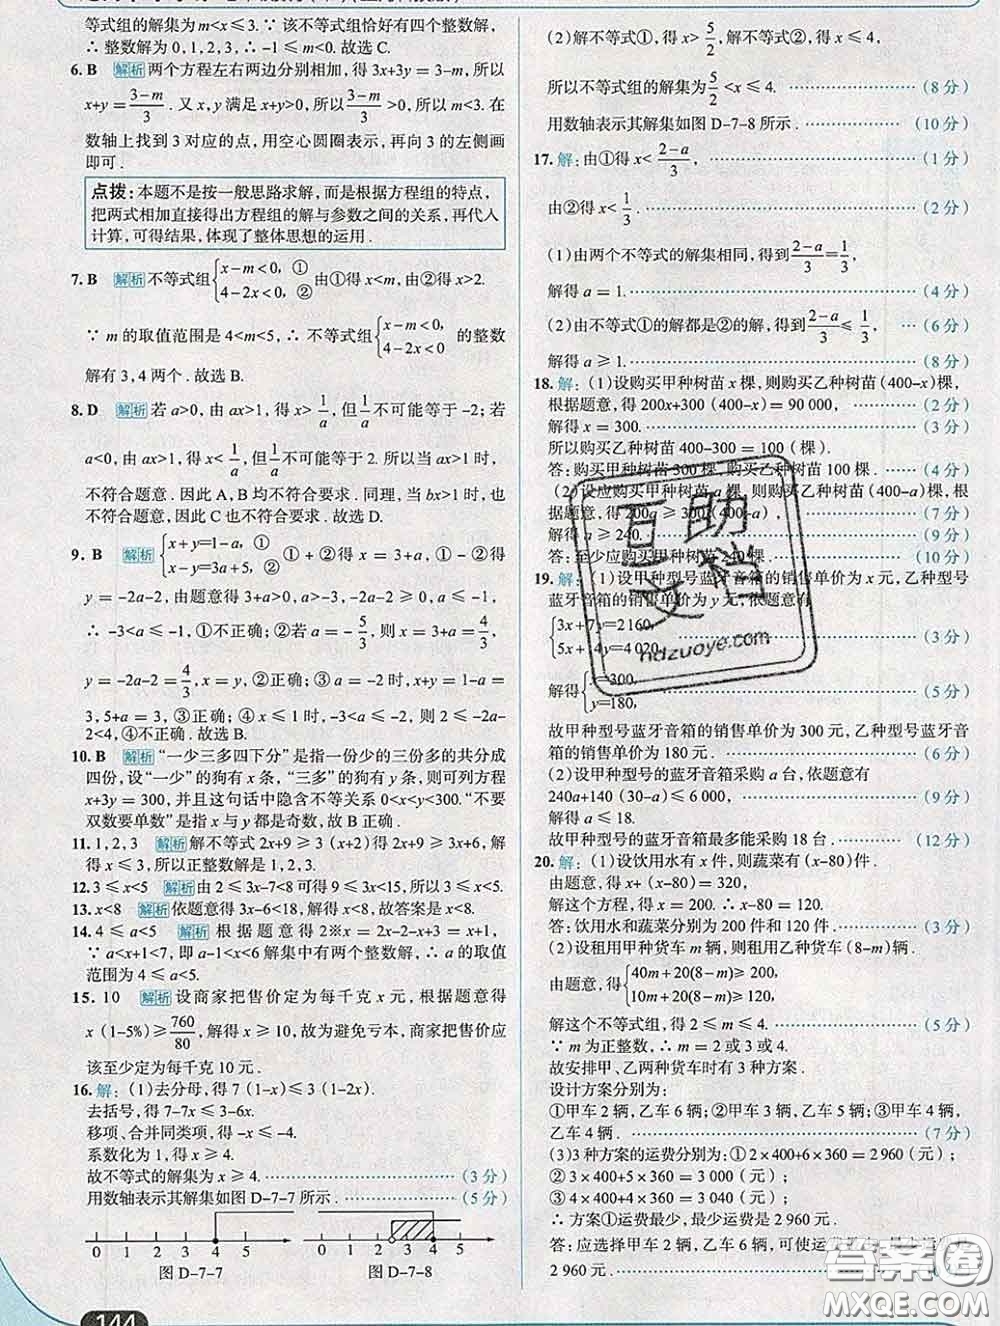 等式组的解集为m<x≤3.∵该不等式组恰好有四个整数解,
∴整数解为0,1,2,3,∴-1≤m<0.故选C.
6.B 解析 两个方程左右两边分别相加,得3x+3y=3-m,所以
x+y=(3-m)/3.又x,y满足x+y>0,所以(3-m)/3>0,所以m<3.在
数轴上找到3对应的点,用空心圆圈表示,再向3的左侧画
即可.
点拨:本题不是按一般思路求解,而是根据方程组的特点,
把两式相加直接得出方程组的解与参数之间的关系,再代入
计算,可得结果,体现了整体思想的运用.
7.B 解析 不等式组{x-m<0,① 4-2x<0,② 由①得x<m,由②得x>2.
∵m的取值范围是4<m<5,∴不等式组{x-m<0, 4-2x<0 的整数
解有3,4两个.故选B.
8.D 解析 若a>0,由ax>1,得x>1/a,但1/a不可能等于-2;若
a<0,由ax>1,得x<1/a,但1/a不可能等于2.所以当ax>1时,
不符合题意.因此A,B均不符合要求.同理,当bx>1时,也
不符合题意,因此C也不符合要求.故选D.
9.B 解析 {x+y=1-a,① x-y=3a+5,② ①+②得x=3+a,①-②得
y=-2a-2,由题意得3+a>0,a>-3,-2a-2≥0,a≤-1,
∴-3<a≤-1,①不正确;②若a=-5/3,则x=3+a=4/3,
y=-2a-2=4/3,x=y,②正确;③当a=-2时,x+y=1-a=
3,5+a=3,③正确;④x≤1时,a≤-2,则2≤-2a-
2<4,④不正确.故选B.
10.B 解析 “一少三多四下分”是指一份少的三份多的共分成
四份,设“一少”的狗有x条,“三多”的狗有y条,则可列方程
x+3y=300,并且这句话中隐含不等关系0<x<y<300.“不要
双数要单数”是指x与y都是奇数,故B正确.
11.1,2,3 解析 解不等式2x+9≥3(x+2)得2x+9≥3x+6,解
得x≤3,所以正整数解是1,2,3.
12.3≤x<5 解析 由2≤3x-7<8可得9≤3x<15,所以3≤x<5.
13.x<8 解析 依题意得3x-6<18,解得x<8,故答案是x<8.
14.4≤a<5 解析 根据题意得2※x=2x-2-x+3=x+1,∵
a<x+1<7,即a-1<x<6解集中有两个整数解,∴a的取值
范围为4≤a<5.
15.10 解析 设商家把售价定为每千克x元,根据题意得
x(1-5%)≥760/80,解得x≥10,故为避免亏本,商家把售价应
该至少定为每千克10元.
16.解:(1)去分母,得7(1-x)≤3(1-2x).
去括号,得7-7x≤3-6x.
移项、合并同类项,得-x≤-4.
系数化为1,得x≥4.
故不等式的解集为x≥4.(3分)
用数轴表示其解集如图D-7-7所示.(5分)
0 1 2 3 4 5
图D-7-7
0 1 2 3 4 5
图D-7-8
144
(2)解不等式①,得x>5/2,解不等式②,得x≤4,
所以不等式组的解集为5/2<x≤4.(8分)
用数轴表示其解集如图D-7-8所示.(10分)
17.解:由①得x<(2-a)/3,(1分)
由②得x<1/3.(2分)
(1)由两个不等式的解集相同,得到(2-a)/3=1/3,
解得a=1.(4分)
(2)由不等式①的解都是②的解,得到(2-a)/3≤1/3,…(6分)
解得a≥1.(8分)
18.解:(1)设购买甲种树苗x棵,则购买乙种树苗(400-x)棵,
根据题意,得200x+300(400-x)=90 000,(2分)
解得x=300.(3分)
所以购买乙种树苗400-300=100(棵).
答:购买甲种树苗300棵,购买乙种树苗100棵.(4分)
(2)设应购买甲种树苗a棵,则购买乙种树苗(400-a)棵,根
据题意,得200a≥300(400-a),(7分)
解得a≥240.(9分)
答:至少应购买甲种树苗240棵.(10分)
19.解:(1)设甲种型号蓝牙音箱的销售单价为x元,乙种型号
蓝牙音箱的销售单价为y元,依题意有
{3x+7y=2160, 5x+14y=4020,(3分)
解得{x=300, y=180,(5分)
故甲种型号蓝牙音箱的销售单价为300元,乙种型号蓝牙音
箱的销售单价为180元.(6分)
(2)设甲种型号的蓝牙音箱采购a台,依题意有
240a+140(30-a)≤6 000,(9分)
解得a≤18.
故甲种型号的蓝牙音箱最多能采购18台.(12分)
20.解:(1)设饮用水有x件,则蔬菜有(x-80)件.
由题意,得x+(x-80)=320,
解这个方程,得x=200.∴x-80=120.
答:饮用水和蔬菜分别为200件和120件.(3分)
(2)设租用甲种货车m辆,则租用乙种货车(8-m)辆.
由题意,得{40m+20(8-m)≥200, 10m+20(8-m)≥120,
解这个不等式组,得2≤m≤4.(5分)
∵m为正整数,∴m=2或3或4.
故安排甲、乙两种货车时有3种方案.
设计方案分别为:
①甲车2辆,乙车6辆;②甲车3辆,乙车5辆;③甲车4辆,
乙车4辆.(7分)
(3)3种方案的运费分别为:①2×400+6×360=2 960(元);
②3×400+5×360=3 000(元);
③4×400+4×360=3 040(元);
∴方案①运费最少,最少运费是2 960元.
答:应选择甲车2辆,乙车6辆,可使运费最少,最少运费是
2 960元.
互助文档
hdzuoye.com
答案圈
MXQE.COM